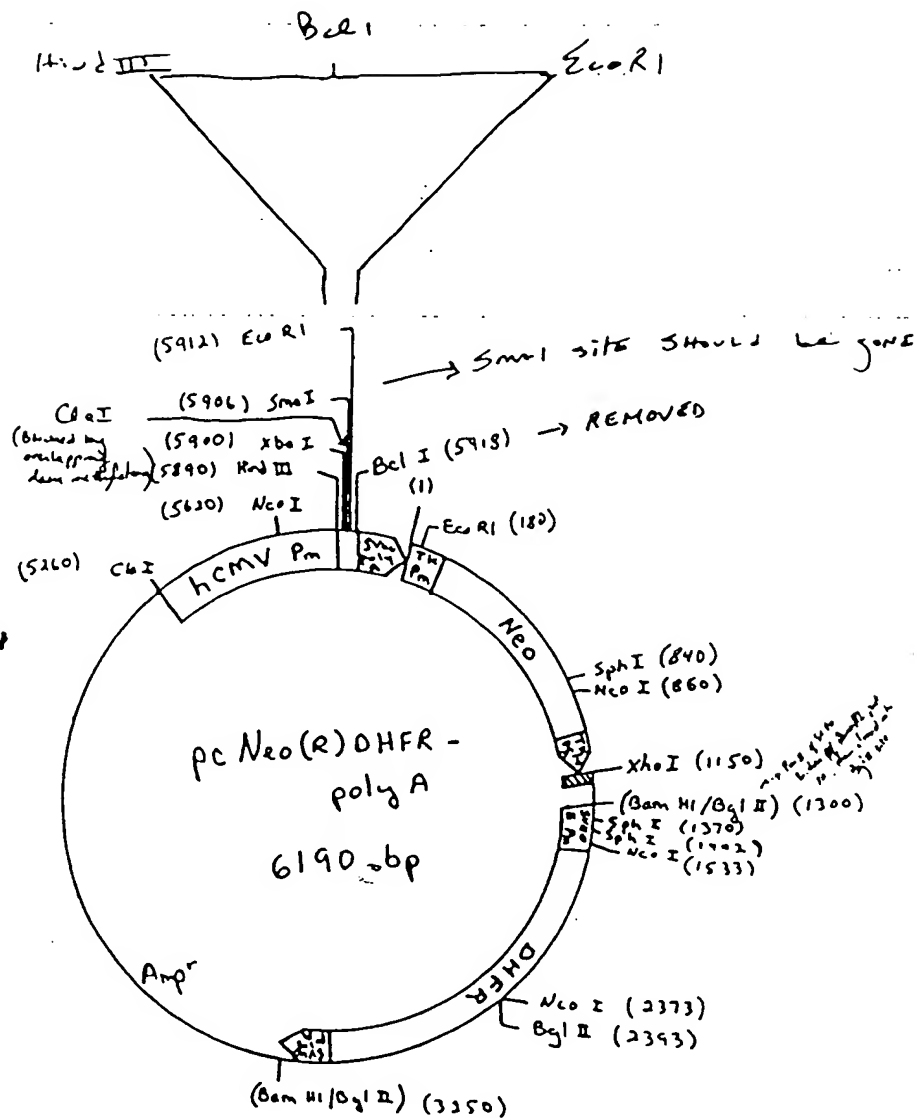 Bcl 1
Hind III
EcoR1
(5912) EcoR1
Sma1 site SHOULD be gone
(5906) SmaI
ClaI
(Blocked by
overlapping
dam methylation)
(5900) XbaI
(5890) Hind III
Bcl I (5918) → REMOVED
(1)
(5620) NcoI
EcoR1 (180)
(5260) ClaI
hCMV Pm
SV40
poly
A
TK
Pm
Neo
SphI (840)
NcoI (860)
XhoI (1150)
(Bam H1/Bgl II) (1300)
SphI (1370)
SphI (1402)
NcoI (1533)
pc Neo(R) DHFR-
poly A
6190 bp
DHFR
Ampr
NcoI (2373)
Bgl II (2393)
(Bam H1/Bgl II) (3250)